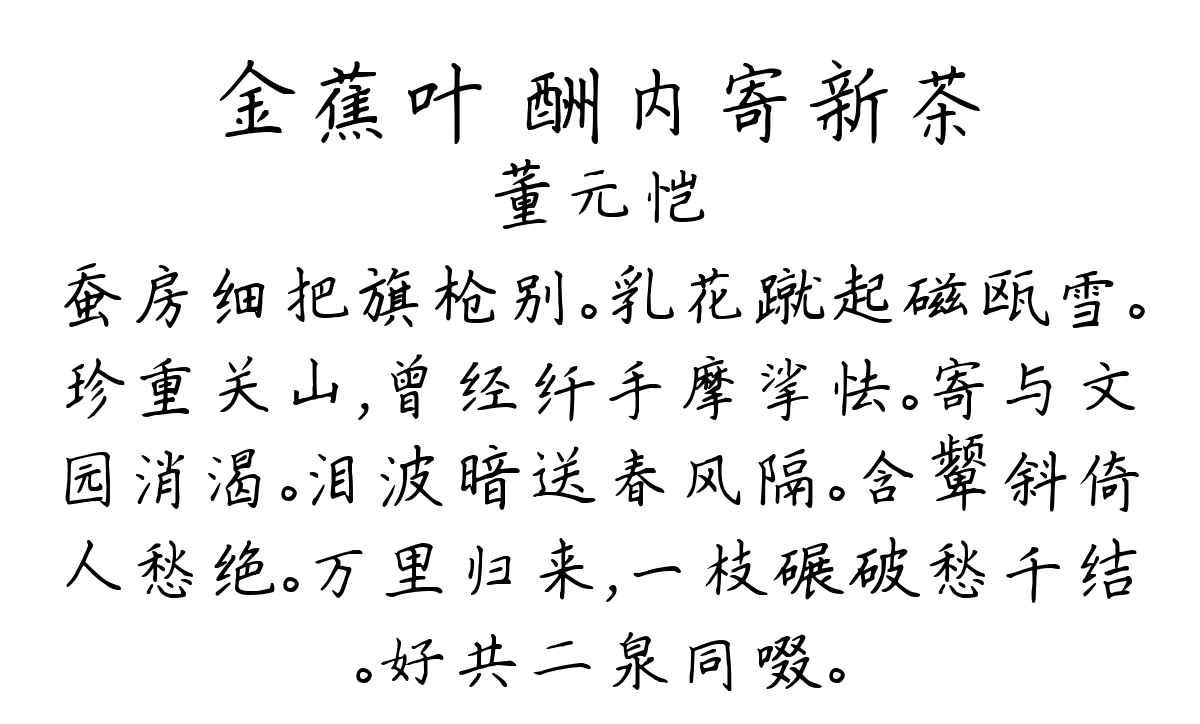 金蕉叶 酬内寄新茶
董元恺
蚕房细把旗枪别。乳花蹴起磁瓯雪。
珍重关山,曾经纤手摩挲怯。寄与文
园消渴。泪波暗送春风隔。含颦斜倚
人愁绝。万里归来,一枝碾破愁千结
。好共二泉同啜。